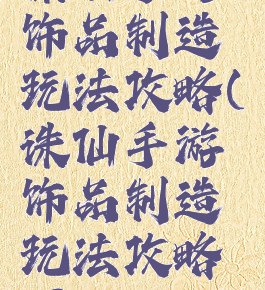 饰品制造
玩法攻略(
诛仙手游
饰品制造
玩法攻略